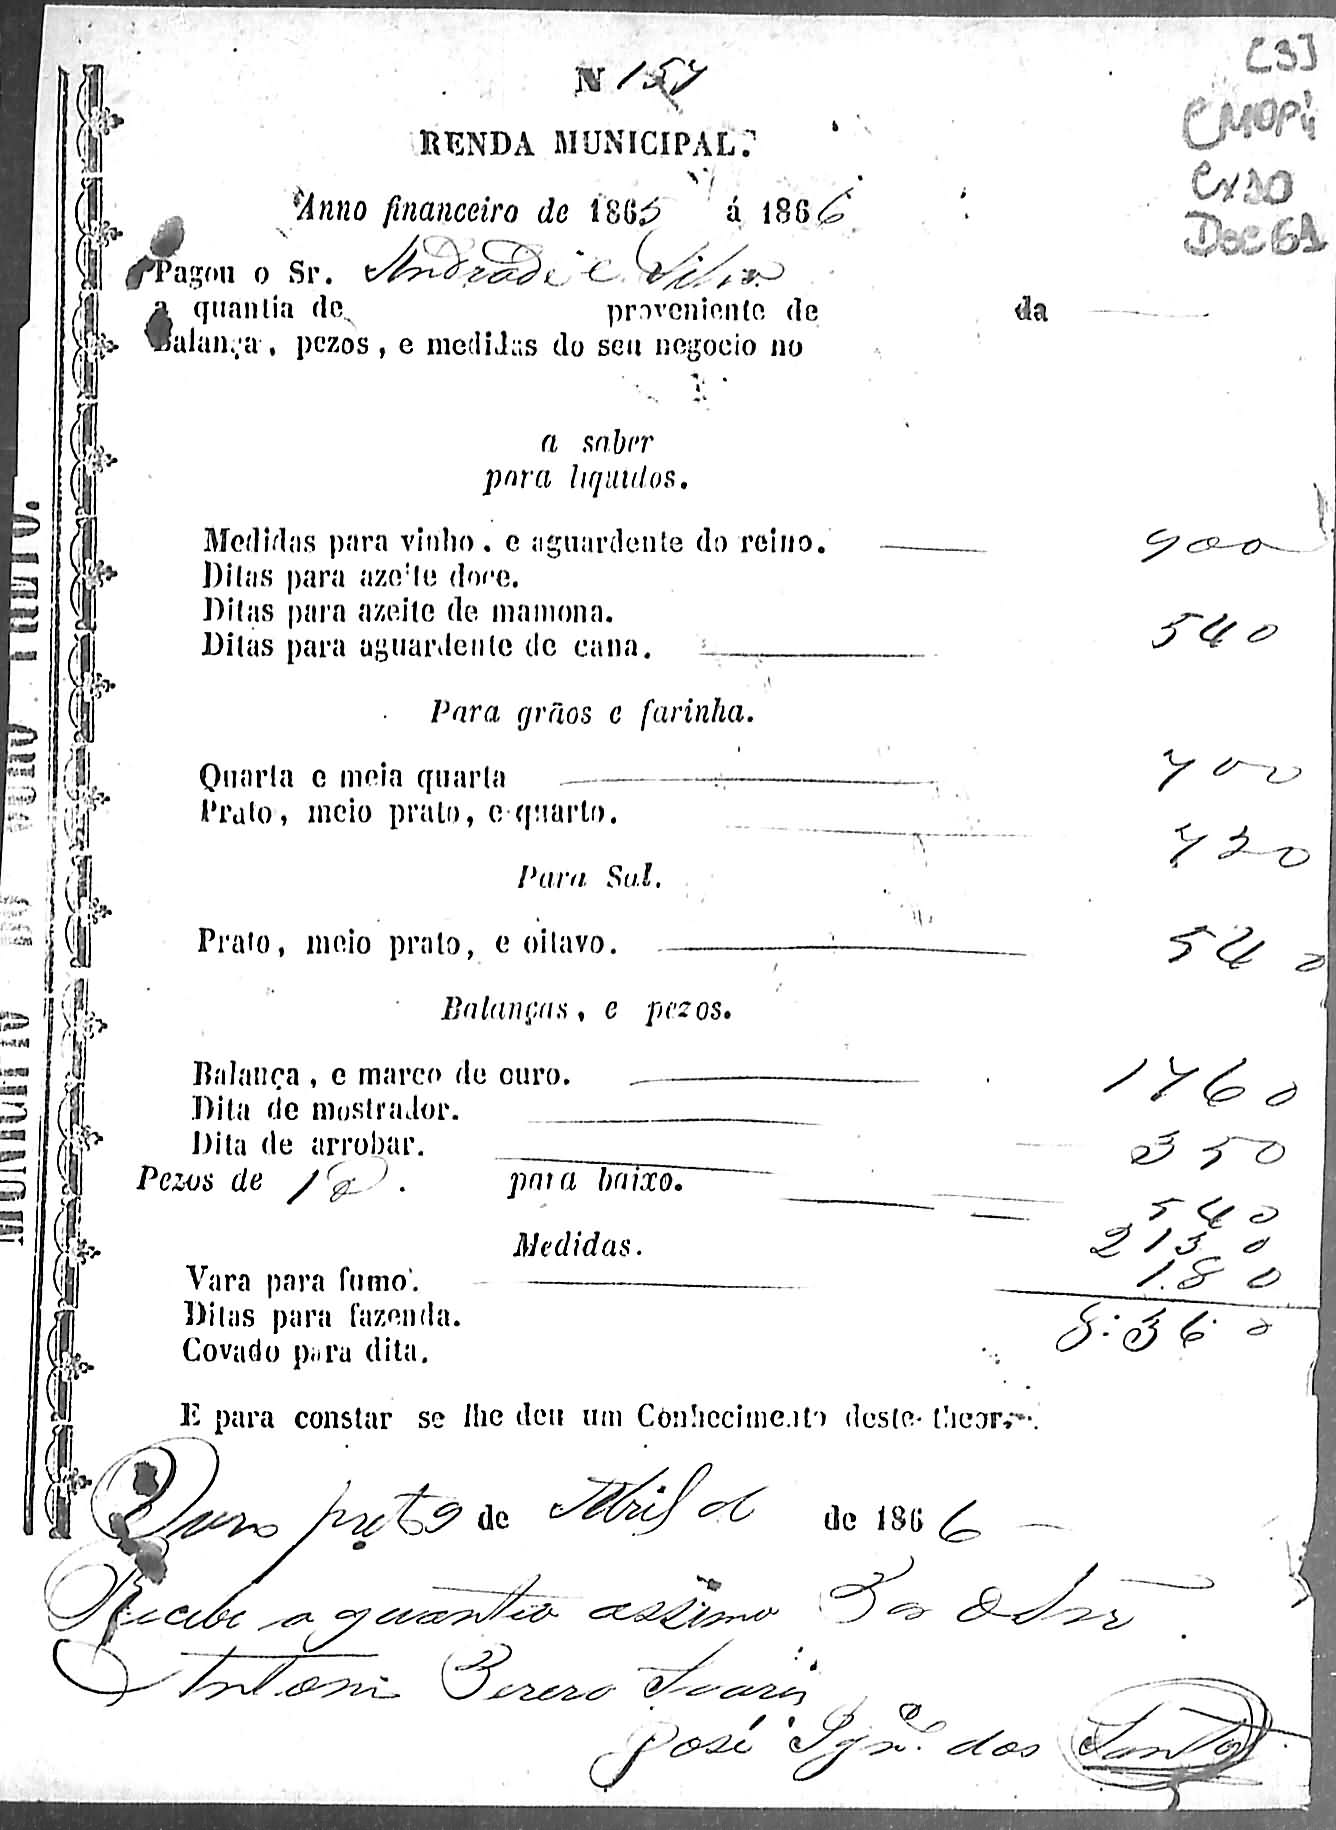 [3]
CMOPi
Cx 20
Doc 61
N 157
RENDA MUNICIPAL.
Anno financeiro de 1865 á 1866
Pagou o Sr. Andrade e Silva
a quantia de proveniente de da
Balança, pezos, e medidas do seu negocio no
a saber
para liquidos.
Medidas para vinho. e aguardente do reino. 900
Ditas para azeite doce.
Ditas para azeite de mamona.
Ditas para aguardente de cana. 540
Para grãos e farinha.
Quarta e meia quarta 700
Prato, meio prato, e quarto. 720
Para Sal.
Prato, meio prato, e oitavo. 540
Balanças, e pezos.
Balança, e marco de ouro. 1760
Dita de mostrador. 350
Dita de arrobar. 540
Pezos de para baixo. 2130
Medidas.
Vara para fumo. 180
Ditas para fazenda.
Covado para dita. 8:360
E para constar se lhe deu um Conhecimento deste theor.
Ouro preto 9 de Abril de de 1866
Recebi a quantia assima
Antoni Soares
José Ign.º dos Santos
MUNICIPIO DE OURO PRETO.